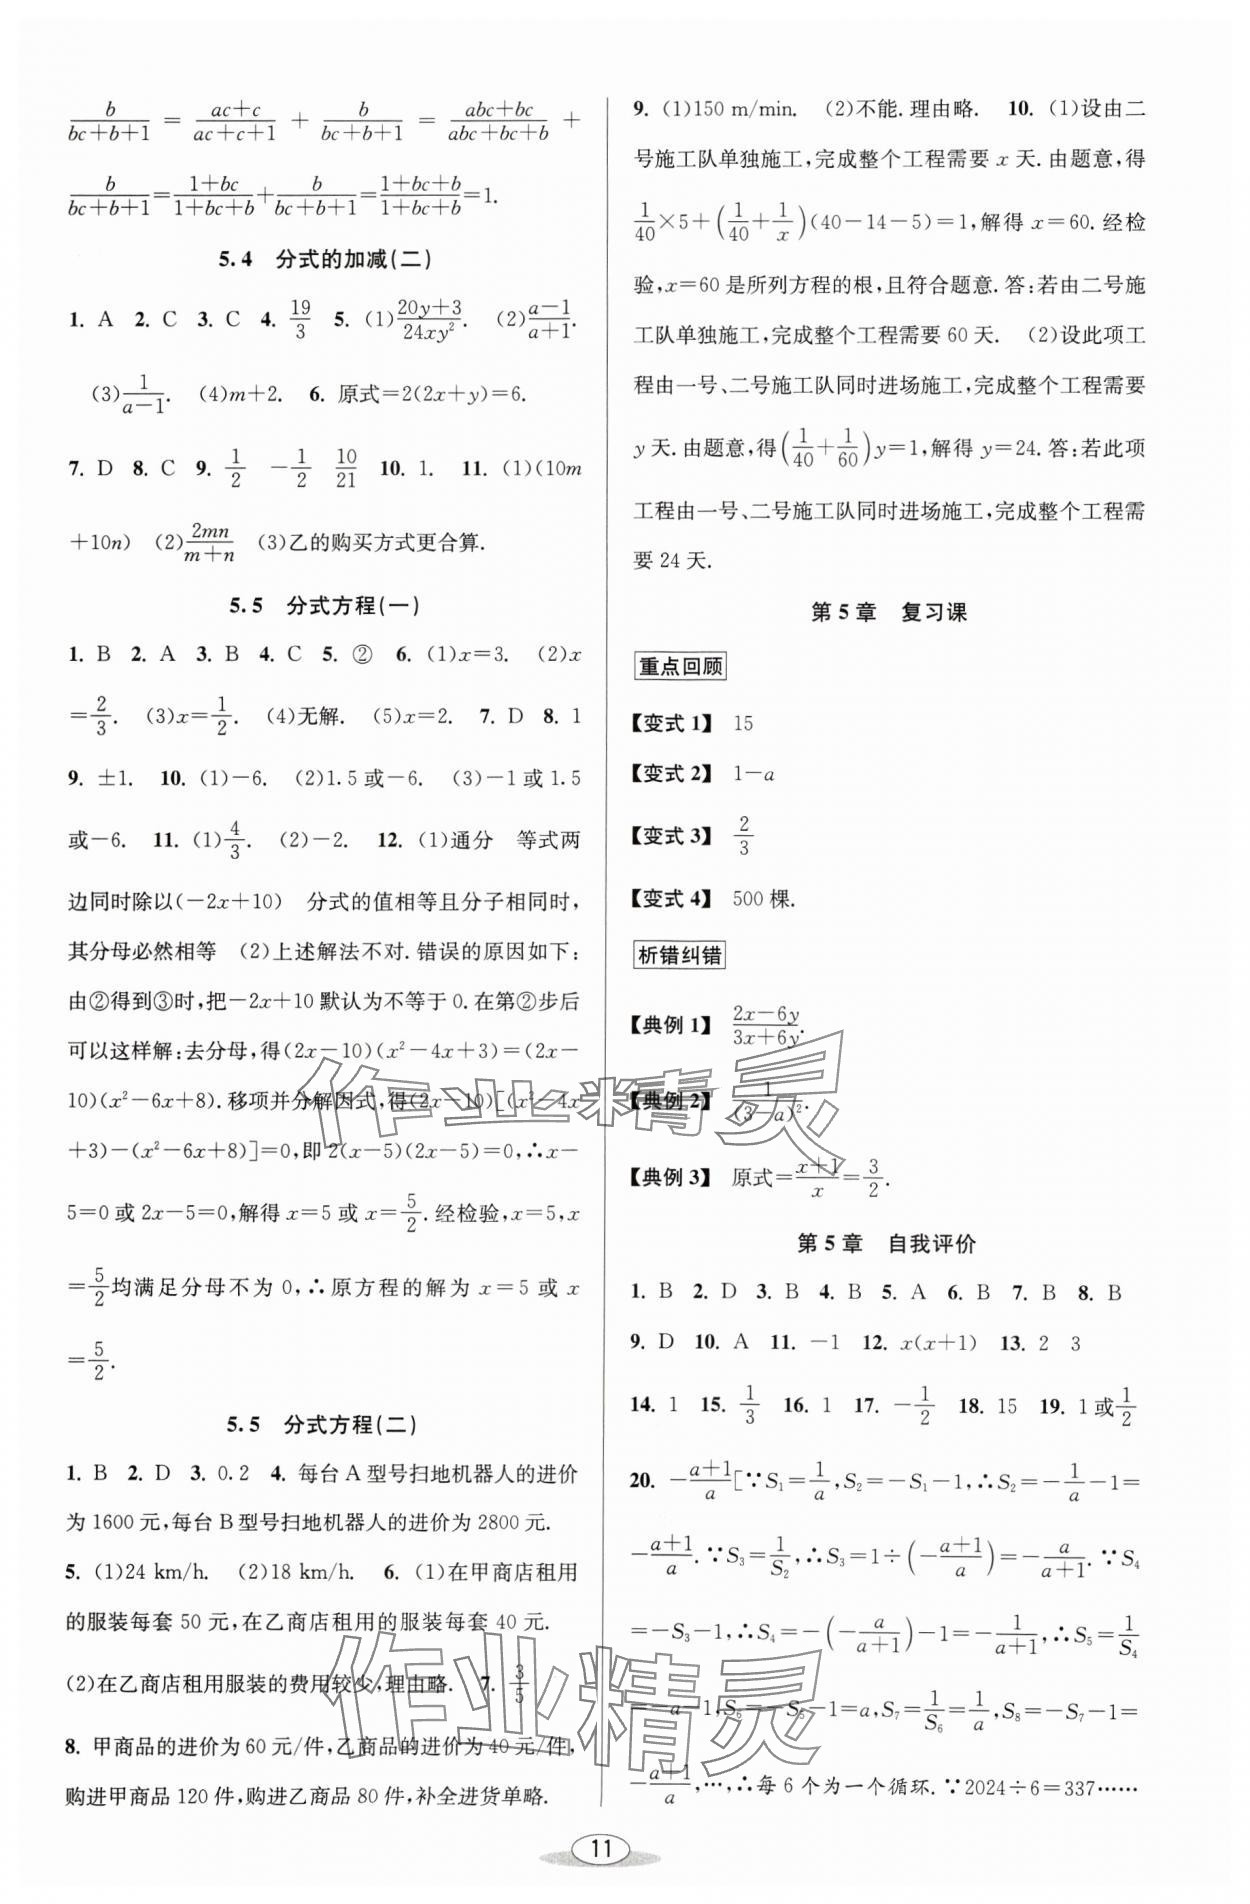 b/(bc+b+1) = (ac+c)/(ac+c+1) + b/(bc+b+1) = (abc+bc)/(abc+bc+b) +
b/(bc+b+1)=(1+bc)/(1+bc+b)+b/(bc+b+1)=(1+bc+b)/(1+bc+b)=1.
5.4 分式的加减(二)
1. A 2. C 3. C 4. 19/3 5. (1)(20y+3)/(24xy²). (2)(a-1)/(a+1).
(3)1/(a-1). (4)m+2. 6. 原式=2(2x+y)=6.
7. D 8. C 9. 1/2 -1/2 10/21 10. 1. 11. (1)(10m
+10n) (2)2mn/(m+n) (3)乙的购买方式更合算.
5.5 分式方程(一)
1. B 2. A 3. B 4. C 5. ② 6. (1)x=3. (2)x
=2/3. (3)x=1/2. (4)无解. (5)x=2. 7. D 8. 1
9. ±1. 10. (1)-6. (2)1.5或-6. (3)-1或1.5
或-6. 11. (1)4/3. (2)-2. 12. (1)通分 等式两
边同时除以(-2x+10) 分式的值相等且分子相同时,
其分母必然相等 (2)上述解法不对.错误的原因如下:
由②得到③时,把-2x+10默认为不等于0.在第②步后
可以这样解:去分母,得(2x-10)(x²-4x+3)=(2x-
10)(x²-6x+8).移项并分解因式,得(2x-10)[(x²-4x
+3)-(x²-6x+8)]=0,即2(x-5)(2x-5)=0,∴x-
5=0或2x-5=0,解得x=5或x=5/2.经检验,x=5,x
=5/2均满足分母不为0,∴原方程的解为x=5或x
=5/2.
5.5 分式方程(二)
1. B 2. D 3. 0.2 4. 每台A型号扫地机器人的进价
为1600元,每台B型号扫地机器人的进价为2800元.
5. (1)24 km/h. (2)18 km/h. 6. (1)在甲商店租用
的服装每套50元,在乙商店租用的服装每套40元.
(2)在乙商店租用服装的费用较少,理由略. 7. 3/5
8. 甲商品的进价为60元/件,乙商品的进价为40元/件,
购进甲商品120件,购进乙商品80件,补全进货单略.
9. (1)150 m/min. (2)不能.理由略. 10. (1)设由二
号施工队单独施工,完成整个工程需要x天.由题意,得
1/40×5+(1/40+1/x)(40-14-5)=1,解得x=60.经检
验,x=60是所列方程的根,且符合题意.答:若由二号施
工队单独施工,完成整个工程需要60天. (2)设此项工
程由一号、二号施工队同时进场施工,完成整个工程需要
y天.由题意,得(1/40+1/60)y=1,解得y=24.答:若此项
工程由一号、二号施工队同时进场施工,完成整个工程需
要24天.
第5章 复习课
重点回顾
【变式1】 15
【变式2】 1-a
【变式3】 2/3
【变式4】 500棵.
析错纠错
【典例1】 (2x-6y)/(3x+6y).
【典例2】 1/(3-a)².
【典例3】 原式=(x+1)/x=3/2.
第5章 自我评价
1. B 2. D 3. B 4. B 5. A 6. B 7. B 8. B
9. D 10. A 11. -1 12. x(x+1) 13. 2 3
14. 1 15. 1/3 16. 1 17. -1/2 18. 15 19. 1或1/2
20. -(a+1)/a[∵S₁=1/a,S₂=-S₁-1,∴S₂=-1/a-1=
-(a+1)/a.∵S₃=1/S₂,∴S₃=1÷(-(a+1)/a)=-a/(a+1).∵S₄
=-S₃-1,∴S₄=-(-a/(a+1))-1=-1/(a+1),∴S₅=1/S₄
=-a-1,S₆=-S₅-1=a,S₇=1/S₆=1/a,S₈=-S₇-1=
-(a+1)/a,…,∴每6个为一个循环.∵2024÷6=337……
11
作业精灵
作业精灵